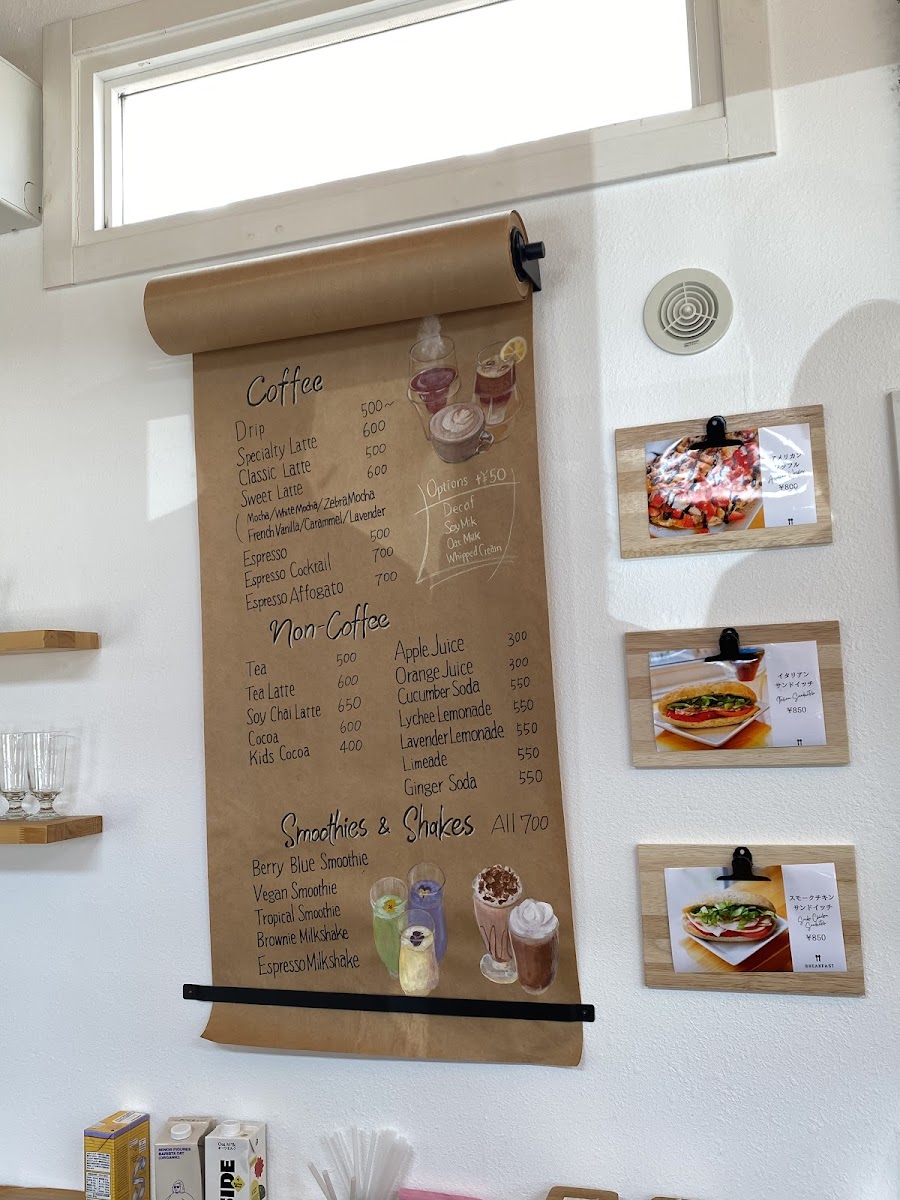 Coffee
Drip 500~
Specialty Latte 600
Classic Latte 500
Sweet Latte 600
(Mocha/White Mocha/Zebra Mocha
French Vanilla/Caramel/Lavender
Espresso 500
Espresso Cocktail 700
Espresso Affogato 700
Options +¥50
Decaf
Soy Milk
Oat Milk
Whipped Cream
Non-Coffee
Tea 500
Tea Latte 600
Soy Chai Latte 650
Cocoa 600
Kids Cocoa 400
Apple Juice 300
Orange Juice 300
Cucumber Soda 550
Lychee Lemonade 550
Lavender Lemonade 550
Limeade 550
Ginger Soda 550
Smoothies & Shakes All 700
Berry Blue Smoothie
Vegan Smoothie
Tropical Smoothie
Brownie Milkshake
Espresso Milkshake
アメリカン
ワッフル
¥800
イタリアン
サンドイッチ
¥850
スモークチキン
サンドイッチ
¥850
BREAKFAST
MINOR FIGURES
BARISTA OAT
(ORGANIC)